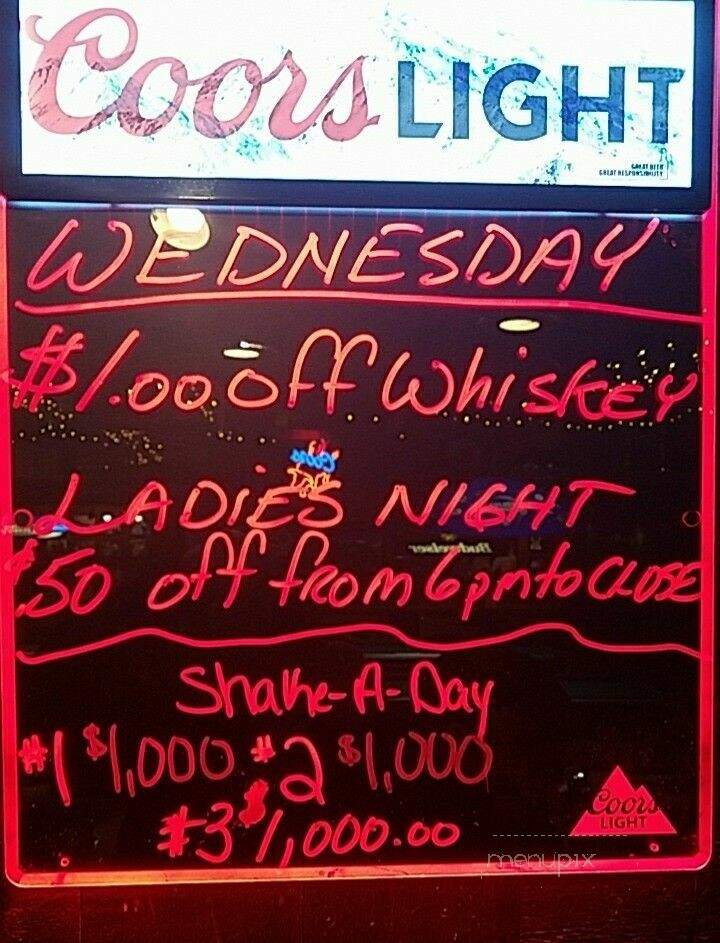 Coors LIGHT
GREAT BEER
GREAT RESPONSIBILITY
WEDNESDAY
$1.00 off Whiskey
Coors
LADIES NIGHT
Budweiser
$.50 off from 6pm to CLOSE
Shake-A-Day
#1 $1,000 #2 $1,000
#3 $1,000.00
Coors
LIGHT
menupix